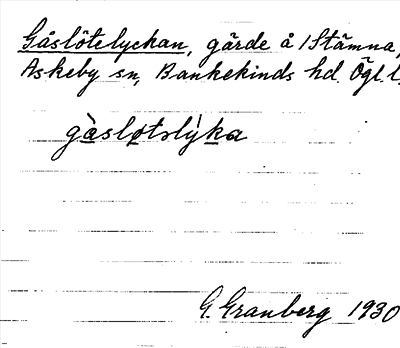 Gåslötelyckan, gärde å 1 Stämna,
Askeby sn, Bankekinds hd. Ögl. l.
gàsløtslýka
G. Granberg 1930